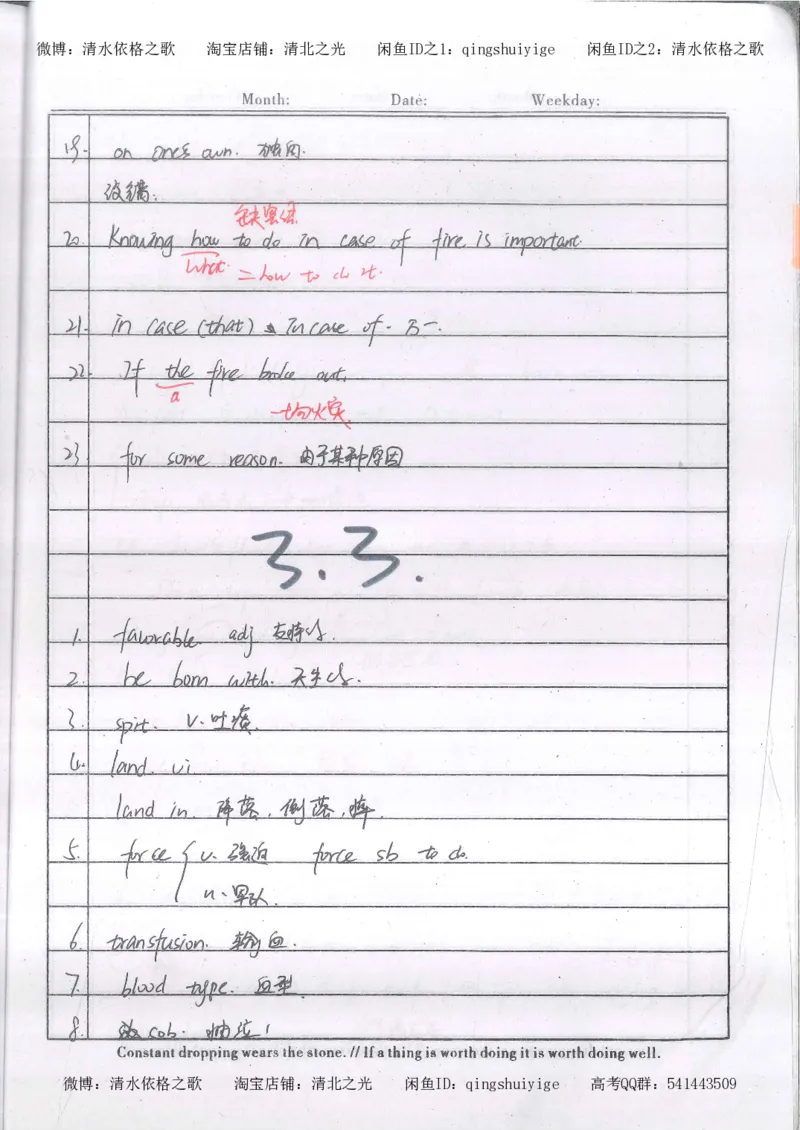 微博：清水依格之歌 淘宝店铺：清北之光 闲鱼ID之1：qingshuiyige 闲鱼ID之2：清水依格之歌
Month: Date: Weekday:
19. on one's own. 独自.
改编：
缺宾语
20. Knowing how to do in case of fire is important.
what = how to do it.
21. in case (that) In case of. 万一.
22. If the fire broke out.
a
一场火灾
23. for some reason. 由于某种原因
3.3.
1. favorable adj 支持的.
2. be born with. 天生的.
3. spit. v. 吐痰.
4. land. vi
land in. 降落，倒落，摔.
5. force { v. 强迫 force sb to do.
n. 军队.
6. transfusion. 输血.
7. blood type. 血型.
8. sob.
Constant dropping wears the stone. // If a thing is worth doing it is worth doing well.
微博：清水依格之歌 淘宝店铺：清北之光 闲鱼ID：qingshuiyige 高考QQ群：541443509